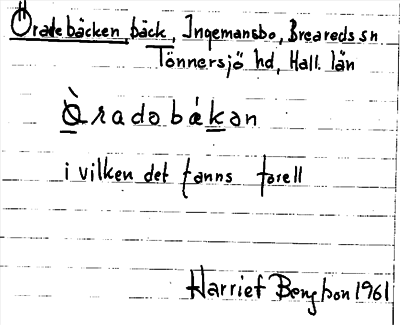 Öradebäcken bäck, Ingemansbo, Breareds sn
Tönnersjö hd, Hall. län
Òradabákan
i vilken det fanns forell
Harriet Bengtson 1961